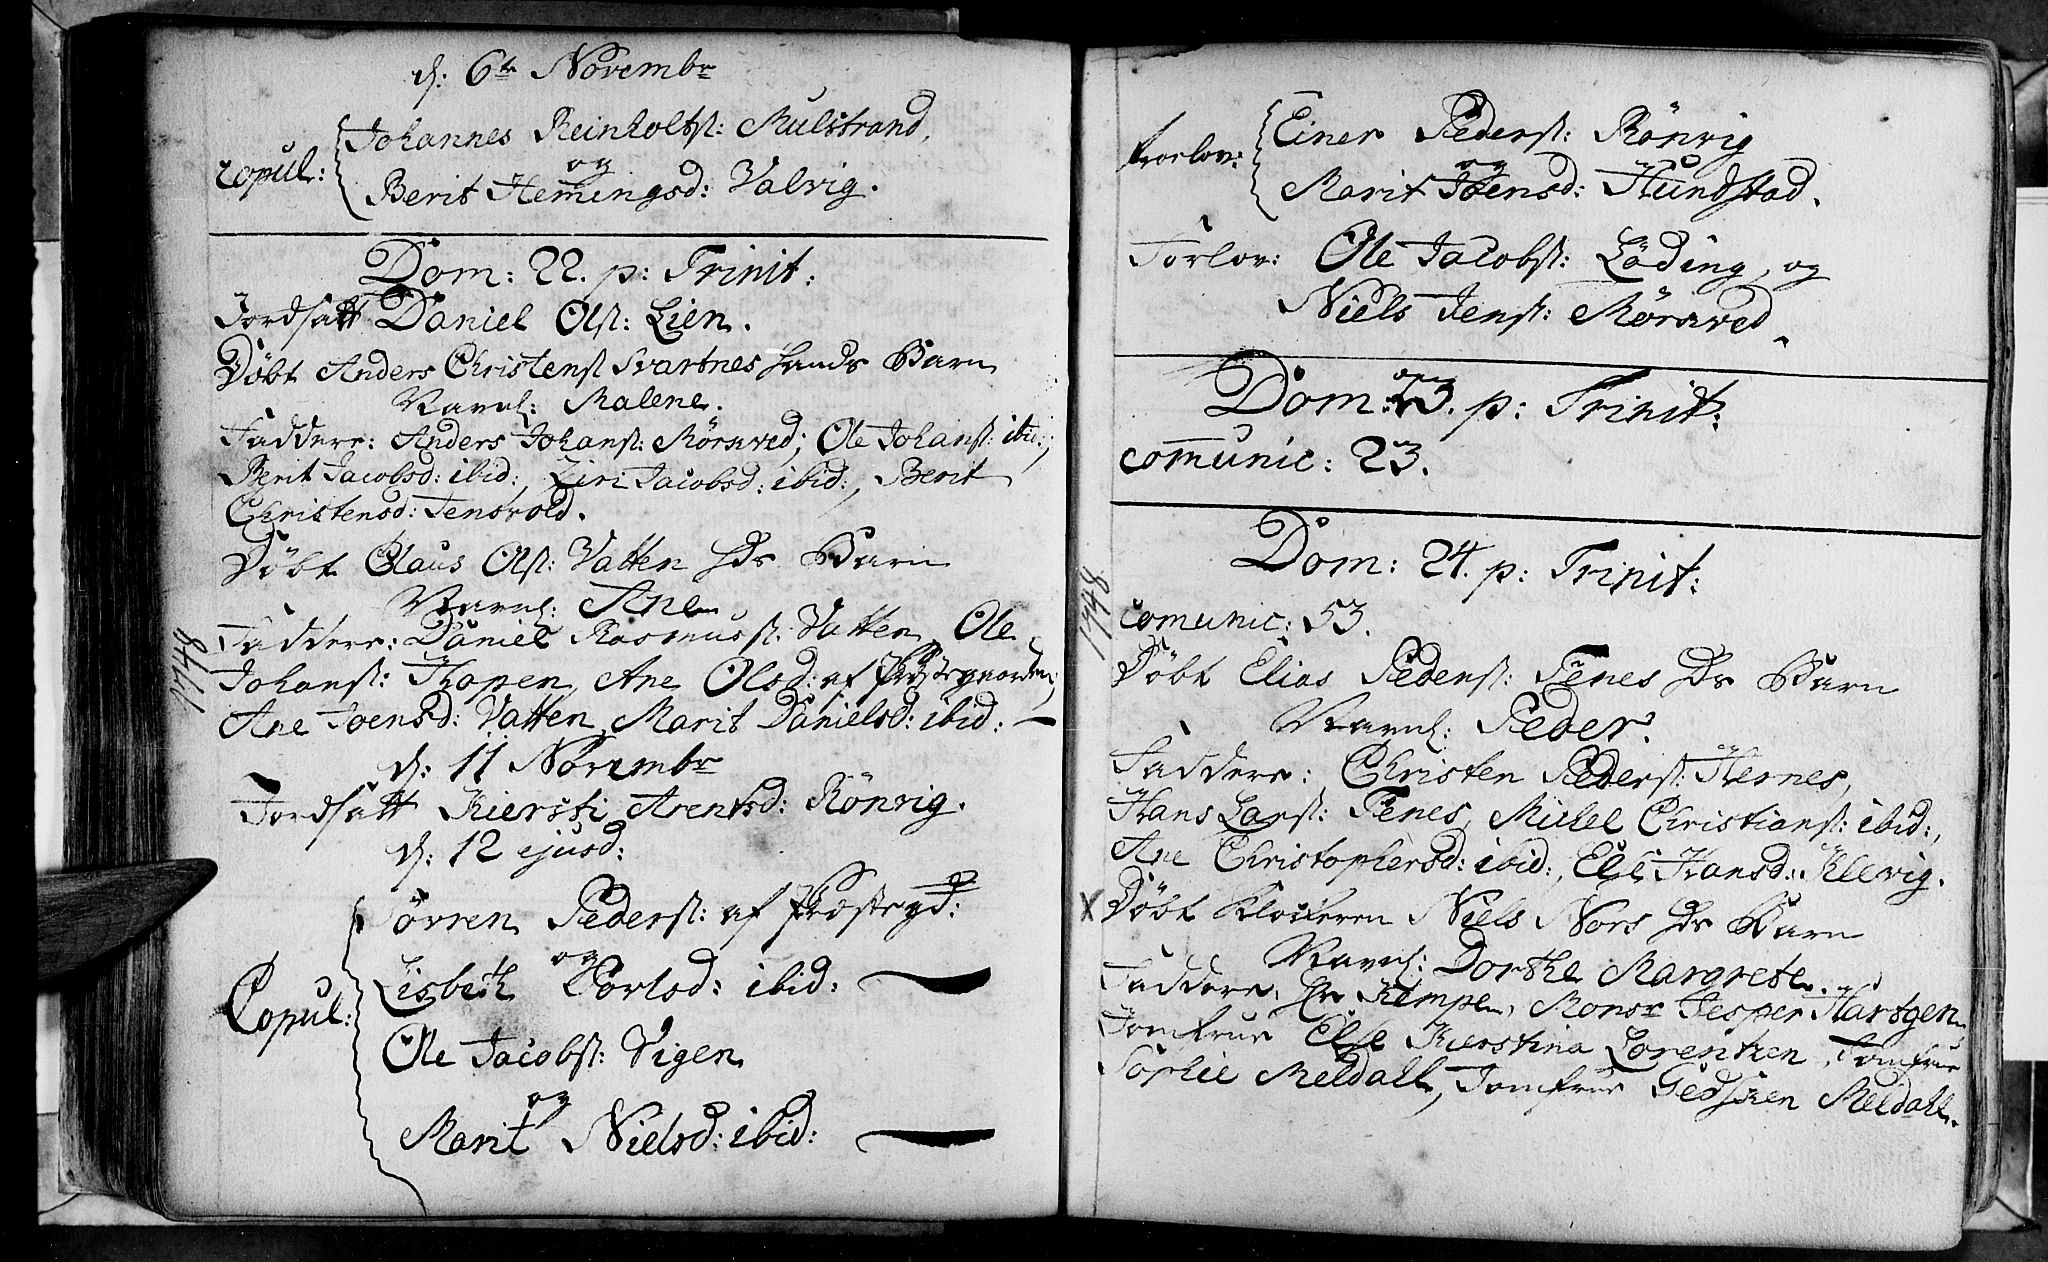 d: 6te Novembr
Copul: Johannes Reinholtsl: Mulstrand,
og
Berit Hemingsd: Valvig.
Dom: 22. p: Trinit:
Jordsatt Daniel Olsl: Lien.
Døbt Anders Christensl Svartnes hands Barn
Navnl: Malene.
Faddere: Anders Johansl: Mørsved; Ole Johansl: ibid:,
Berit Jacobsd: ibid:, Ziri Jacobsd: ibid:, Berit
Christensd: Jensvold.
Døbt Claus Olsl: Vatten Hds Barn
Navnl: Ane
Faddere: Daniel Rasmussl: Vatten, Ole
Johansl: Kopen, Ane Olsd: af Præstegaarden,
Ane Joensd: Vatten, Marit Danielsd: ibid:
1748
d: 11 Novembr
Jordsatt Kiersti Arentsd: Rönvig.
d: 12 ejusd:
Sörren Pedersl: af Præstegd:
og
Lisbeth ibid:
Copul:
Ole Jacobsl: Vigen
og
Marit Nielsd: ibid:
Troelov: Einer Pedersl: Rönvig
og
Marit Joensd: Hundstad.
Forlov: Ole Jacobsl: Löding, og
Niels Jensl: Mørsved.
Dom: 23. p: Trinit:
comunic: 23.
Dom: 24. p: Trinit:
1748
comunic: 53.
Døbt Elias Pedersl: Tenes Hds Barn
Navnl: Peder.
Faddere: Christen Pedersl: Hernes,
Hans Larsl: Tenes, Mickel Christiansl: ibid:,
Ane Christophersd: ibid:, Else Hansd: Klevig.
X Døbt Klockeren Niels Nors Hds Barn
Navnl: Dorthe Margrete.
Faddere, Hr Kempe, Monsr Jesper Hartgen,
Jomfrue Else Kierstina Lorentzen, Jomfrue
Sophie Meldall, Jomfrue Gedsken Meldahl.